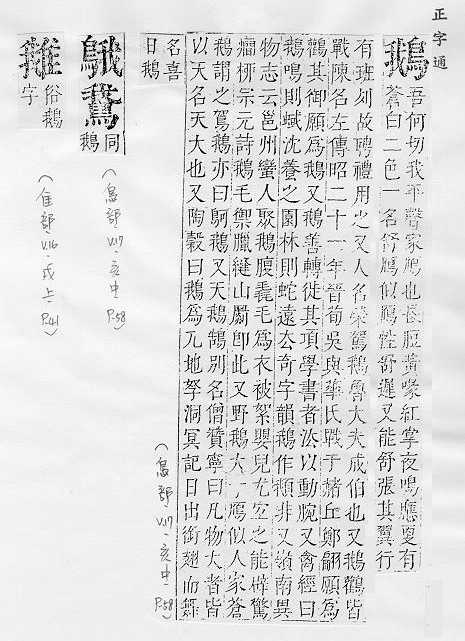 正字通
鵝
吾何切我平聲家鴈也長脰黃喙紅掌夜鳴應更有
蒼白二色一名舒鴈似鴈性舒遲又能舒張其翼行
有班列故聘禮用之又人名榮駕鵝魯大夫成伯也又鵝鸛皆
戰陳名左傳昭二十一年晉荀吳與華氏戰于赭丘鄭翩願為
鸛其御願為鵝又鵝善轉徙其項學書者法以動腕又禽經曰
鵝鳴則蜮沈養之園林則蛇遠去奇字韻鵝作頱非又嶺南異
物志云邕州蠻人聚鵝腹毳毛為衣被絮嬰兒尤宜之能辟驚
癎柳宗元詩鵝毛禦臘縫山罽即此又野鵝大于鴈似人家蒼
鵝謂之駕鵝亦曰鴚鵝又天鵝鵠別名僧贊寧曰凡物大者皆
以天名天大也又陶穀曰鵝為兀地孥洞冥記日出銜翅而舞
名喜
日鵝
(鳥部 V.17．亥中 P.58)
䳗鵞
同
鵝
(鳥部 V.17．亥中 P.58)
俗鵝
字
(隹部 V.16．戌上 P.41)